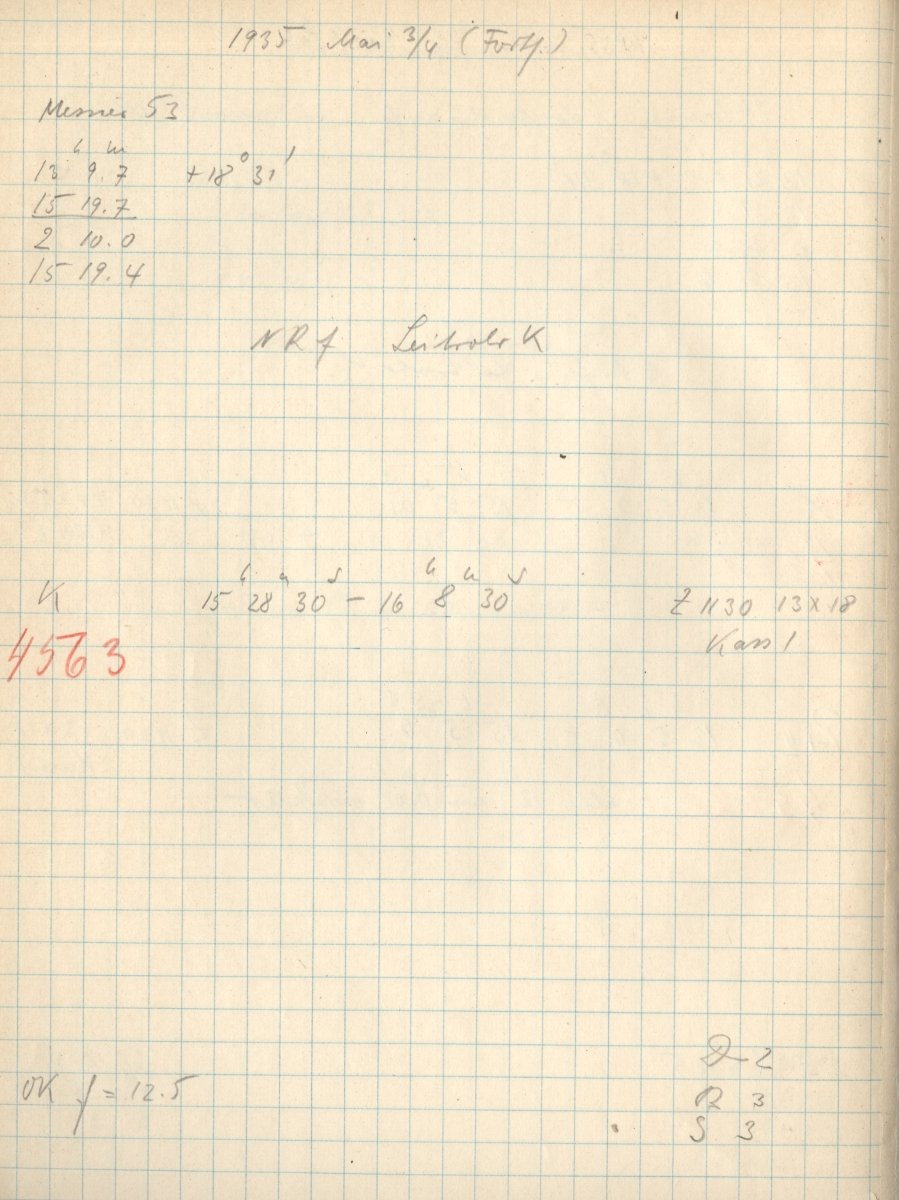 1935 Mai 3/4 (Fortf.)
Messier 53
h m
13 9.7 +18° 31'
15 19.7
2 10.0
15 19.4
NRf Leitrohr K
K 15h 28m 30s – 16h 8m 30s Z 1130 13x18
4563 Kass 1
D 2
OK f = 12.5
R 3
S 3